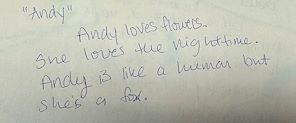 "Andy"
Andy loves flowers.
She loves the nighttime.
Andy is like a human but
she's a fox.